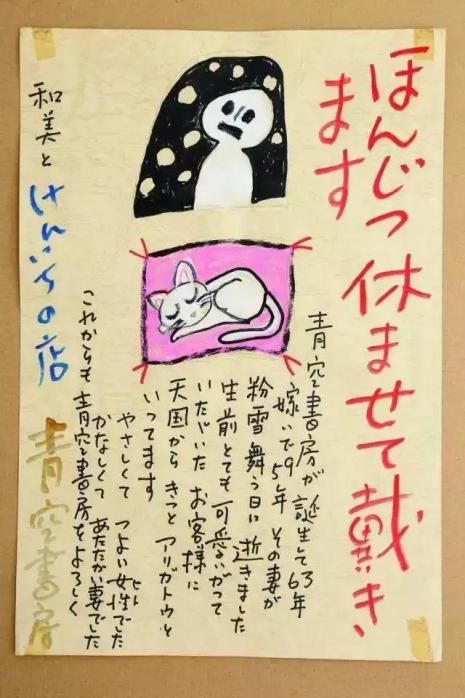 ほんじつ休ませて戴き
ます
青空書房が誕生して63年
嫁いで95年 その妻が
粉雪舞う日に 逝きました
生前とても可愛いがって
いただいた お客様に
天国から きっと アリガトウと
いってます
やさしくて つよい女性でした
ヒト
かなしくて あたたかい妻でした
これからも 青空書房をよろしく
和美と
けんいちの店
青空書房